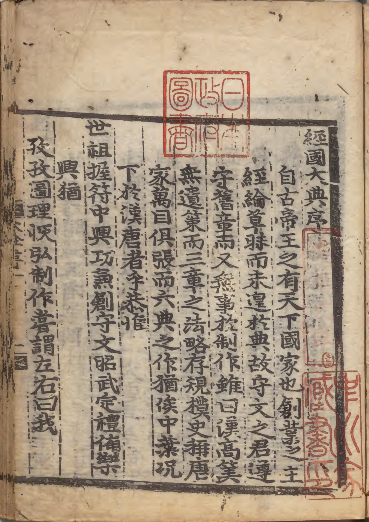 日本
政府
圖書
經國大典序
自古帝王之有天下國家也創業之主
經綸草昧而未遑於典故守文之君遵
守舊章而又無事於制作雖曰漢高筭
無遺策而三章之法略存規模史稱唐
家萬目俱張而六典之作猶俟中葉況
下於漢唐者乎恭惟
世祖握符中興功兼創守文昭武定禮備樂
興猶
孜孜圖理恢弘制作嘗謂左右曰我